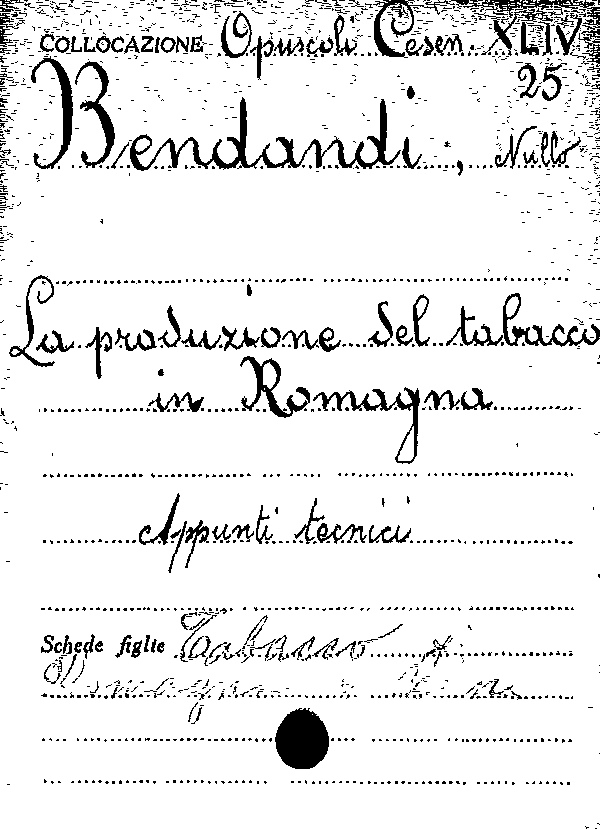 COLLOCAZIONE Opuscoli Cesen. XLIV
25
Bendandi, Nullo
La produzione del tabacco
in Romagna
Appunti tecnici
Schede figlie Tabacco
Romagna